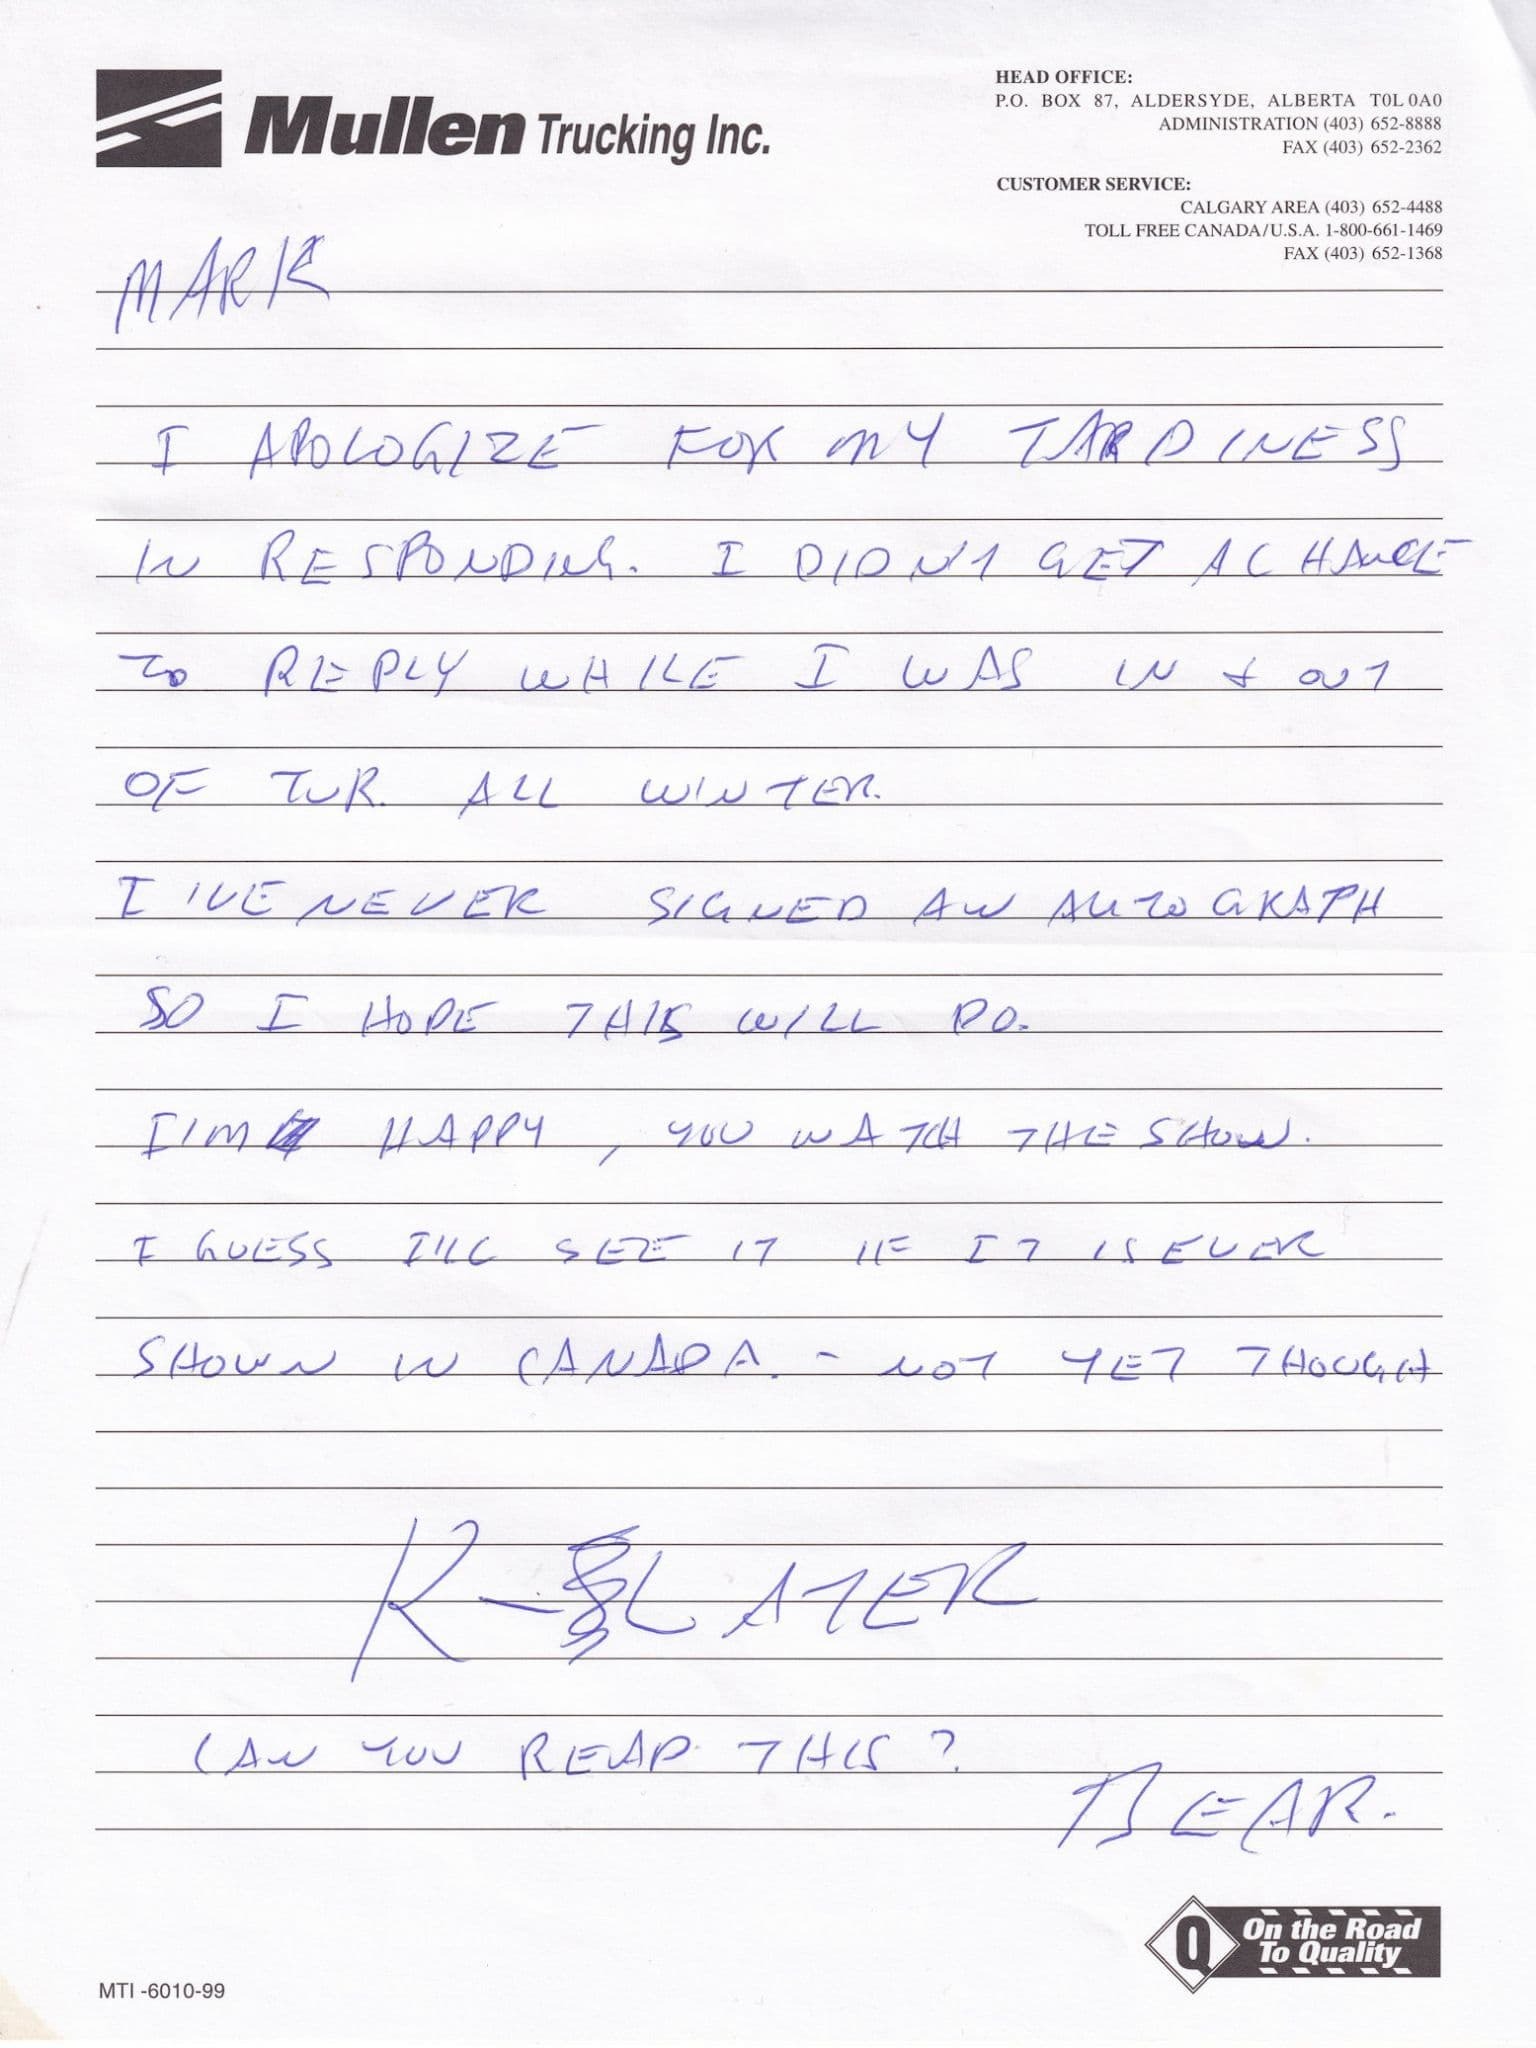 Mullen Trucking Inc.
HEAD OFFICE:
P.O. BOX 87, ALDERSYDE, ALBERTA T0L 0A0
ADMINISTRATION (403) 652-8888
FAX (403) 652-2362
CUSTOMER SERVICE:
CALGARY AREA (403) 652-4488
TOLL FREE CANADA/U.S.A. 1-800-661-1469
FAX (403) 652-1368
MARK
I APOLOGIZE FOR MY TARDINESS
IN RESPONDING. I DIDN'T GET A CHANCE
TO REPLY WHILE I WAS IN & OUT
OF TUK. ALL WINTER.
I'VE NEVER SIGNED AN AUTOGRAPH
SO I HOPE THIS WILL DO.
I'M HAPPY, YOU WATCH THE SHOW.
I GUESS I'LL SEE IT IF IT IS EVER
SHOWN IN CANADA. - NOT YET THOUGH
R-SLATER
CAN YOU READ THIS?
BEAR.
Q On the Road
To Quality
MTI -6010-99